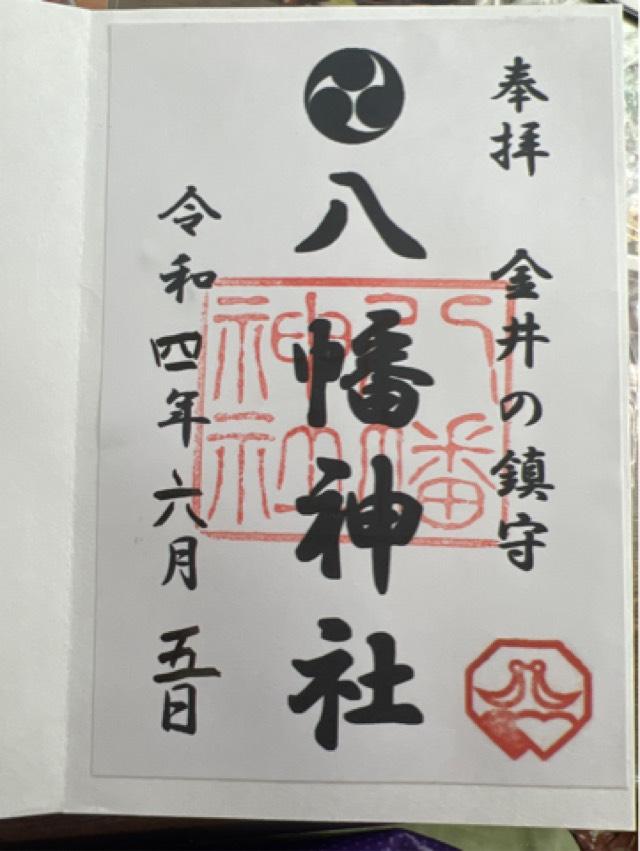 奉拝 金井の鎮守
八幡神社
八幡神社
令和四年六月五日